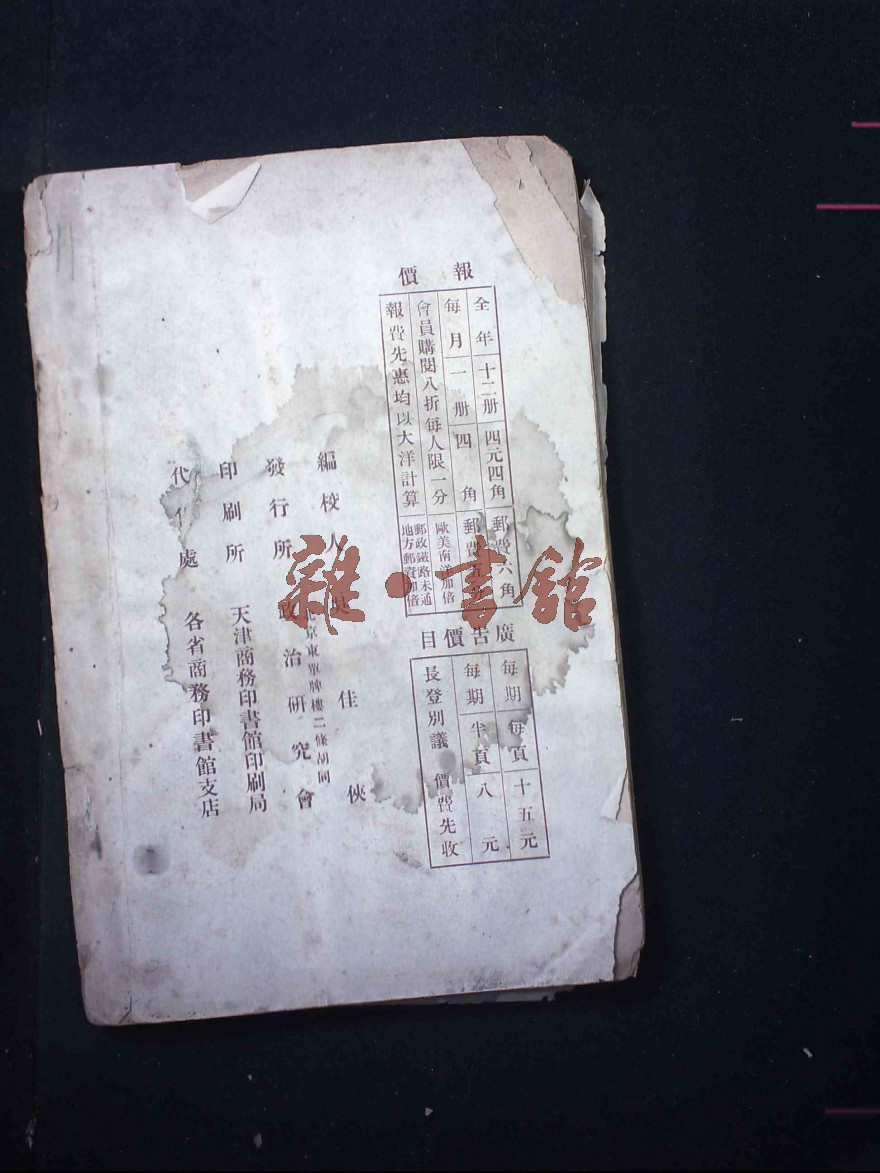 報價
全年十二册四元四角郵費六角
每月一册四角郵費五分
歐美南洋加倍
會員購閱八折每人限一分
報費先惠均以大洋計算
郵政鐵路未通
地方郵資加倍
廣告價目
每期每頁十五元
每期半頁八元
長登別議價費先收
編校人佳俠
北京東單牌樓二條胡同
發行所政治研究會
印刷所天津商務印書館印刷局
代處各省商務印書館支店
雜·書館